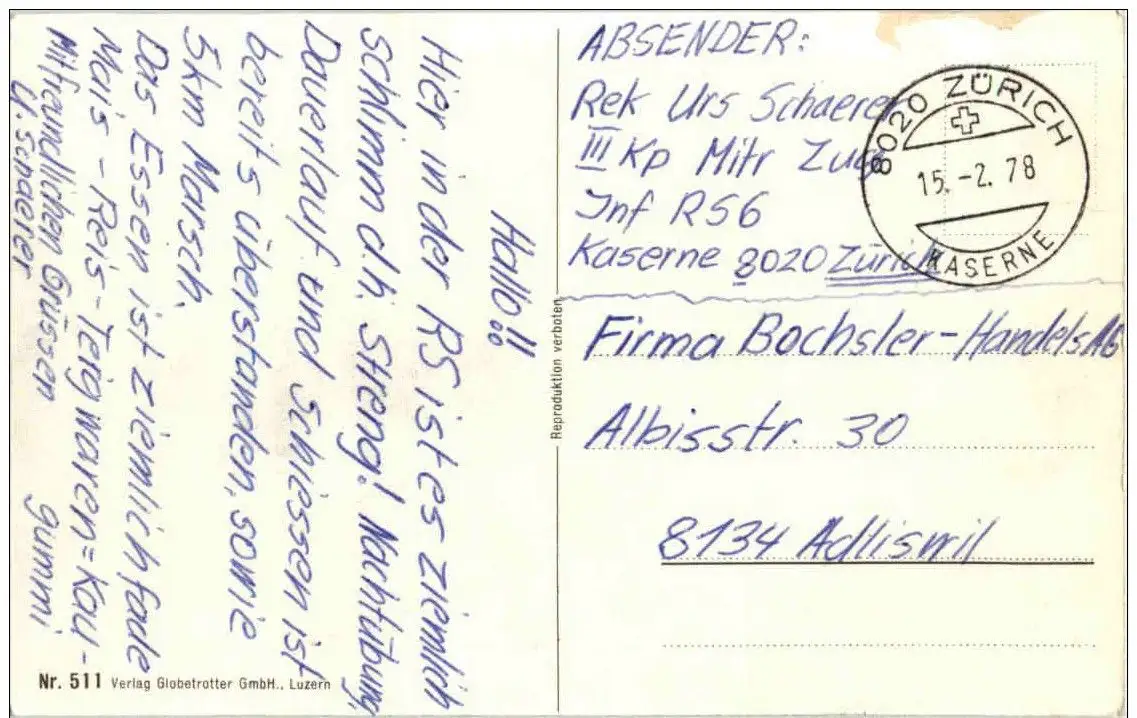 Hallo!!
Hier in der RS ist es ziemlich
schlimm d.h. Streng! Nachtübung,
Dauerlauf und Schiessen ist
bereits überstanden, sowie
5km Marsch.
Das Essen ist ziemlich fade
Mais-Reis-Teigwaren=Kau-
gummi
Mit freundlichen Grüssen
U. Schaerer
Nr. 511 Verlag Globetrotter GmbH., Luzern
Reproduktion verboten
ABSENDER:
Rek Urs Schaerer
III Kp Mitr Zug
Inf RS6
Kaserne 8020 Zürich
8020 ZÜRICH
15.-2.78
KASERNE
Firma Bochsler-Handels AG
Albisstr. 30
8134 Adliswil